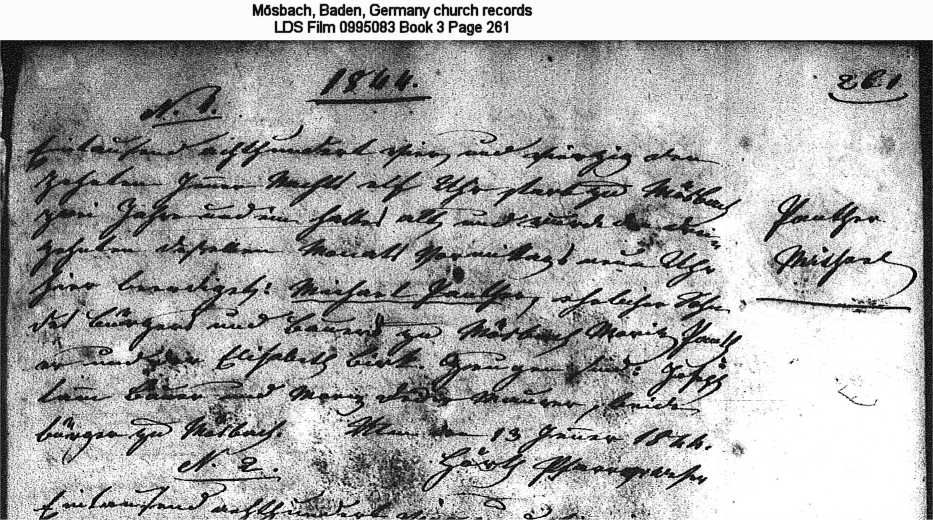 Mösbach, Baden, Germany church records
LDS Film 0995083 Book 3 Page 261
1844.
261
N. 1.
Eintausend achthundert vier und vierzig den
zehnten Jenner Nachts elf Uhr starb zu Mösbach
zwei Jahre und ein halbes alt, und wurde den drei-
zehnten desselben Monats Vormittags neun Uhr
hier beerdigt: Michael Panther, ehelicher Sohn
des Bürgers und Bauers zu Mösbach Moritz Panth
er und der Elisabeth Zeugen sind: Joseph
Bauer und Moritz Maurer, beide
Bürger zu Mösbach. den 13 Jenner 1844.
Pfarrverweser
Panther
Michael
N. 2.
Eintausend achthundert vier